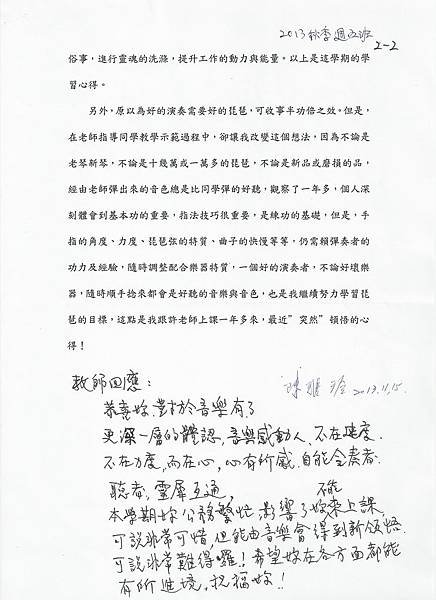 2013秋季週五班
2-2
俗事，進行靈魂的洗滌，提升工作的動力與能量。以上是這學期的學
習心得。
另外，原以為好的演奏需要好的琵琶，可收事半功倍之效。但是，
在老師指導同學教學示範過程中，卻讓我改變這個想法，因為不論是
老琴新琴，不論是十幾萬或一萬多的琵琶，不論是新品或磨損的品，
經由老師彈出來的音色總是比同學彈的好聽，觀察了一年多，個人深
刻體會到基本功的重要，指法技巧很重要，是練功的基礎，但是，手
指的角度、力度、琵琶弦的特質、曲子的快慢等等，仍需賴彈奏者的
功力及經驗，隨時調整配合樂器特質，一個好的演奏者，不論好壞樂
器，隨時順手捻來都會是好聽的音樂與音色，也是我繼續努力學習琵
琶的目標，這點是我跟許老師上課一年多來，最近”突然”領悟的心
得！
教師回應：
陳雅玲 2013.11.15.
恭喜妳對於音樂有了
更深一層的體認，音樂感動人，不在速度，
不在力度，而在心，心有所感，自能令奏者、
聽者，靈犀互通，
本學期妳公務繁忙，影響了妳不能來上課，
可說非常可惜，但能由音樂會得到新領悟，
可說非常難得囉！希望妳在各方面都能
有所進境，祝福妳！！